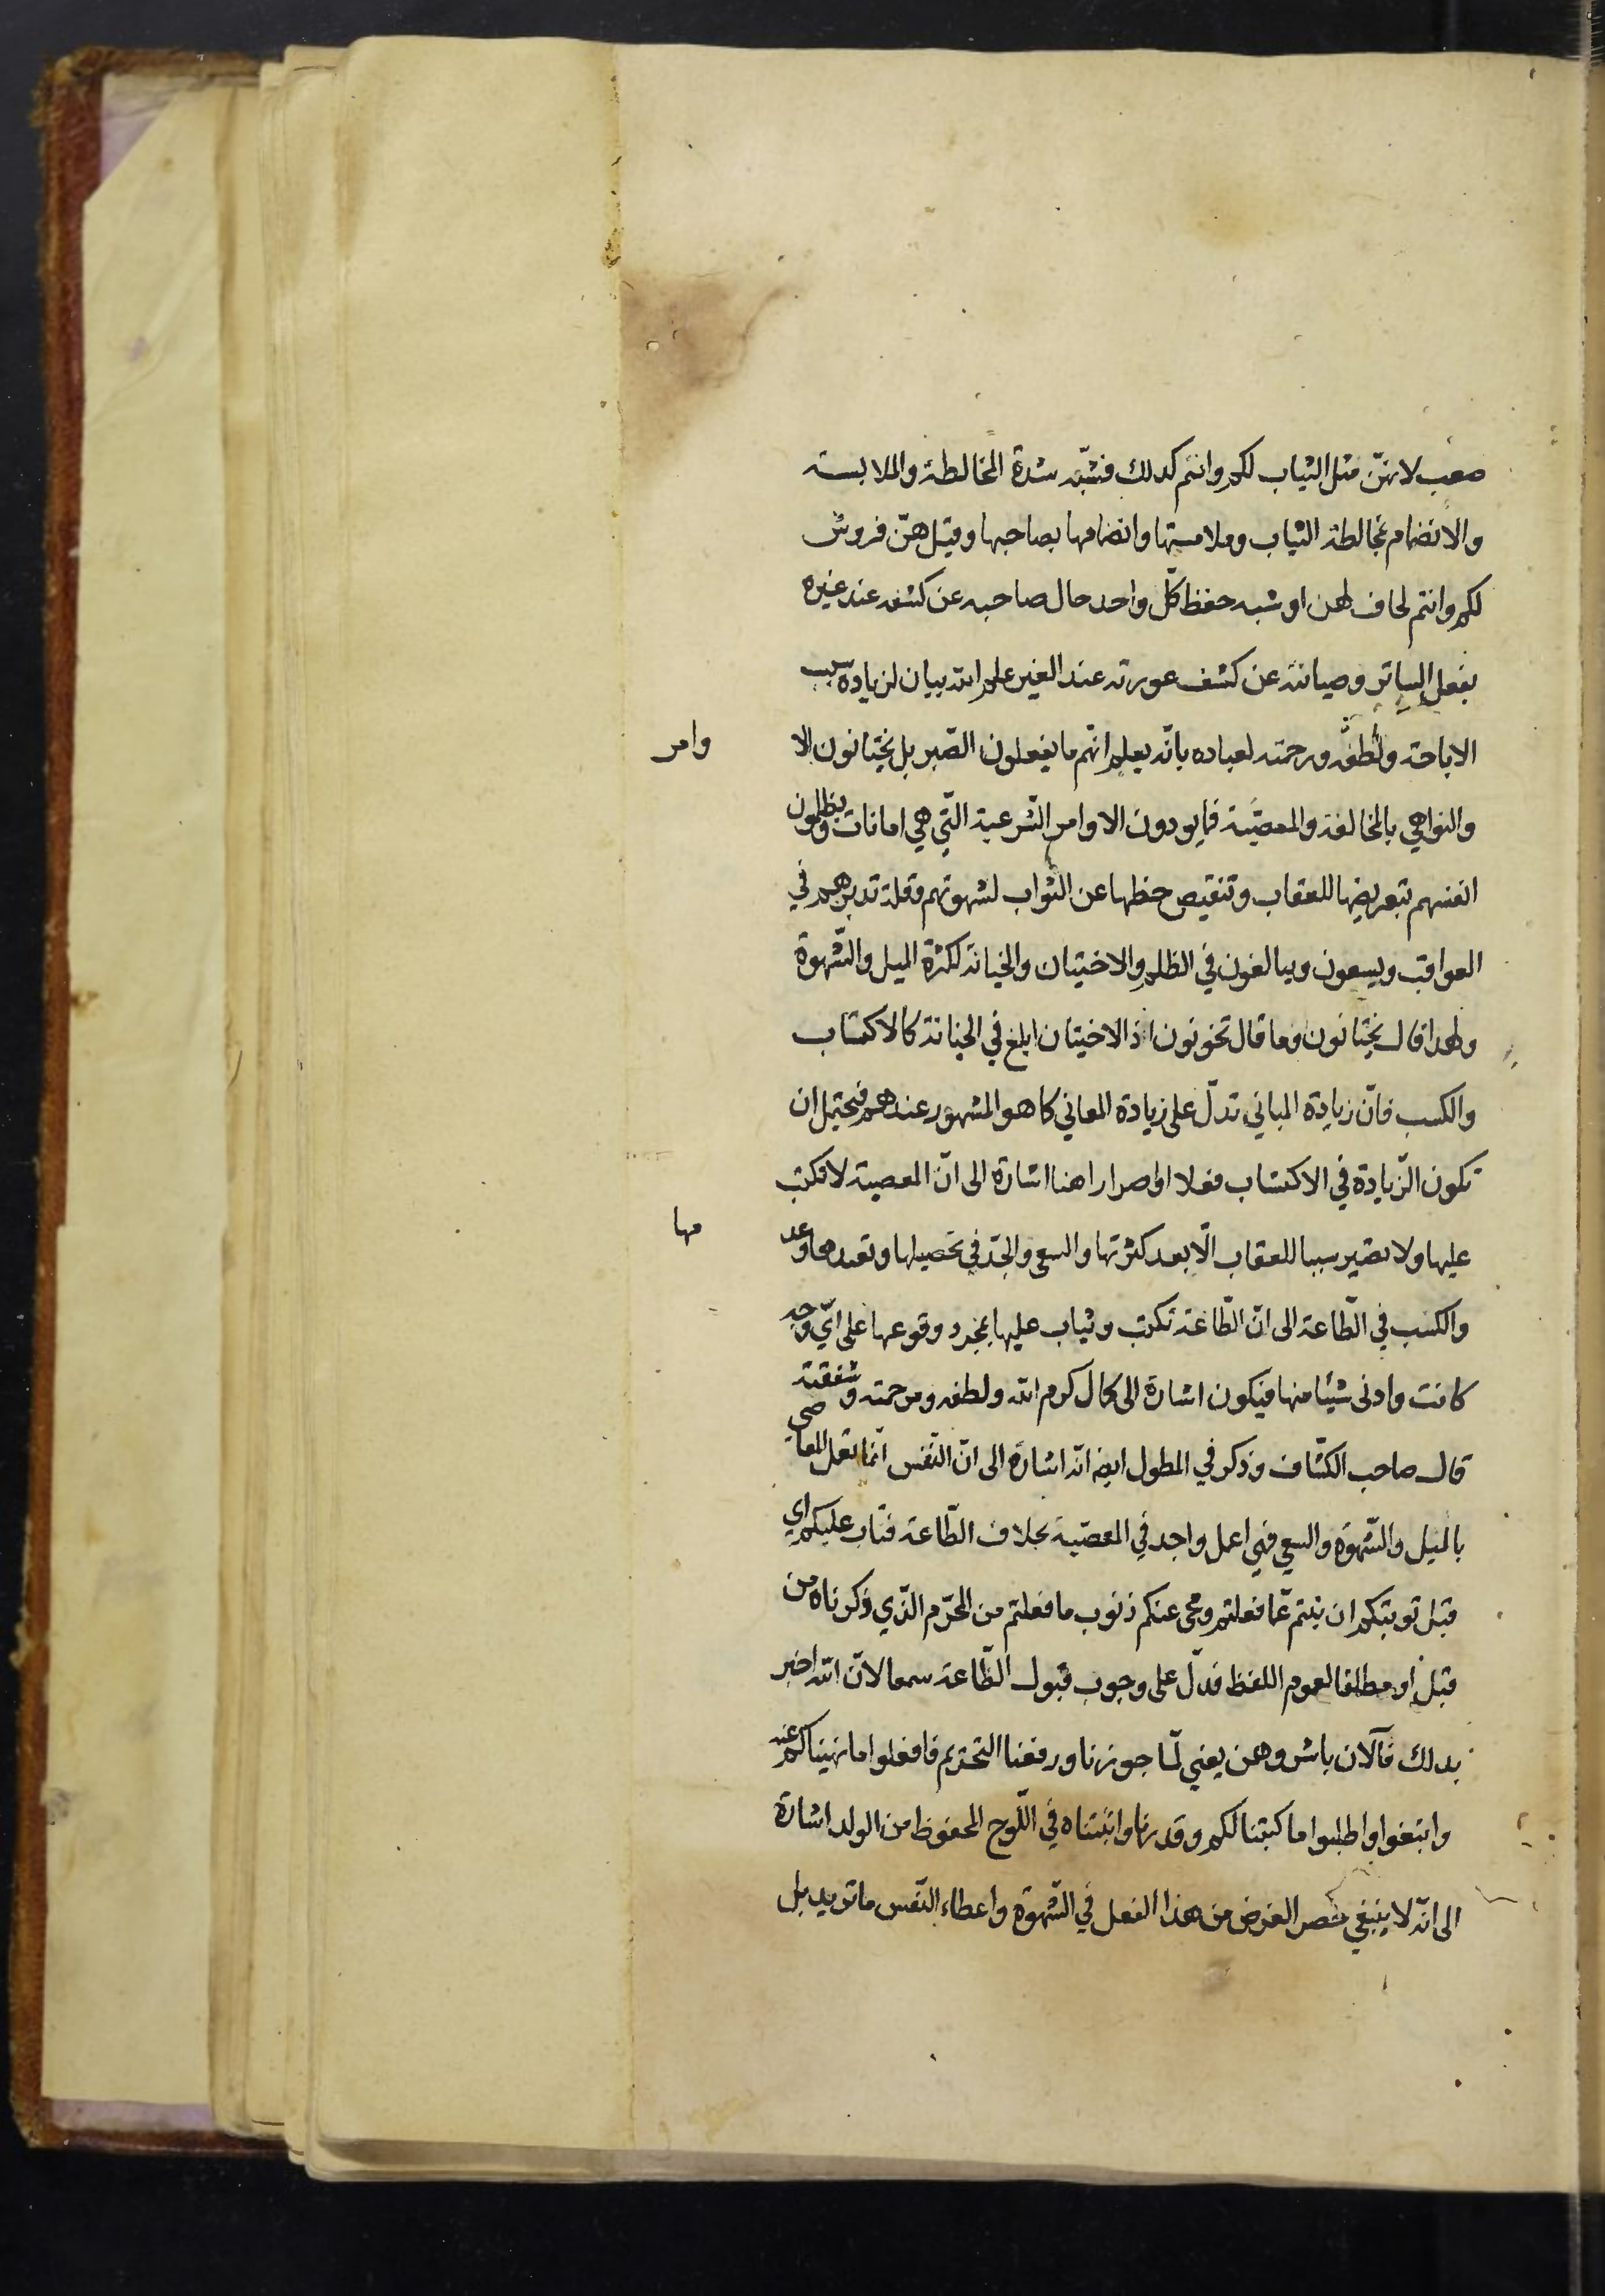 صعب لانهنّ مثل الثياب لكم وانتم كذلك فشبّه شدة المخالطة والملابسة
والانضمام بمخالطة الثياب وملامستها وانضمامها بصاحبها وقيل هنّ فروش
لكم وانتم لحاف لهن او شبه حفظ كلّ واحد حال صاحبه عن كشفه عند غيره
بفعل الساتر وصيانته عن كشف عورته عند الغير علم الله بيان لزيادة سبب
الاباحة ولطفه ورحمته لعباده بانّه يعلم انّهم ما يفعلون الصّبر بل يختانون الا
وامر
والنواهي بالمخالفة والمعصّية فما يودون الاوامر الشّرعية الّتي هي امانات ويظلمون
انفسهم بتعريضها للعقاب وتنقيص حظها عن الثواب لشهوتهم وقلة تدبرهم في
العواقب ويسعون ويبالغون في الظلم والاختيان والخيانة لكثرة الميل والشّهوة
ولهذا قال يختانون وما قال تخونون اذ الاختيان ابلغ في الخيانة كالاكتساب
والكسب فانّ زيادة المباني تدلّ على زيادة المعاني كما هو المشهور عندهم فيحتمل ان
تكون الزّيادة في الاكتساب فعلا او اصرارا هنا اشارة الى انّ المعصية لا تكتب
عليها ولا تصير سببا للعقاب الّا بعد كثرتها والسعي والجدّ في تحصيلها وتعدها وعد
مها
والكسب في الطّاعة الى انّ الطّاعة تكتب ويثاب عليها بمجرد وقوعها على ايّ وجه
كانت وادنى شيئا منها فيكون اشارة الى كمال كرم الله ولطفه ومرحمته وشفقته
قال صاحب الكشّاف وذكر في المطول ايضا انّه اشارة الى انّ النّفس انّما تعمل المعاصي
بالميل والشّهوة والسعي فهي اعمل واجد في المعصّية بخلاف الطّاعة فتاب عليكم اي
قبل توبتكم ان تبتم عمّا فعلتم ومحى عنكم ذنوب ما فعلتم من المحرّم الّذي ذكرناه من
قبل او مطلقا لعموم اللفظ فدلّ على وجوب قبول الطّاعة سمعا لانّ الله اخبر
بذلك فالآن باشروهن يعني لمّا جوزنا ورفعنا التحريم فافعلوا ما نهيناكم عنه
وابتغوا واطلبوا ما كتبنا لكم وقدرنا واثبتناه في اللّوح المحفوظ من الولد اشارة
الى انّه لا ينبغي حصر الغرض من هذا الفعل في الشّهوة واعطاء النّفس ما تريد بل